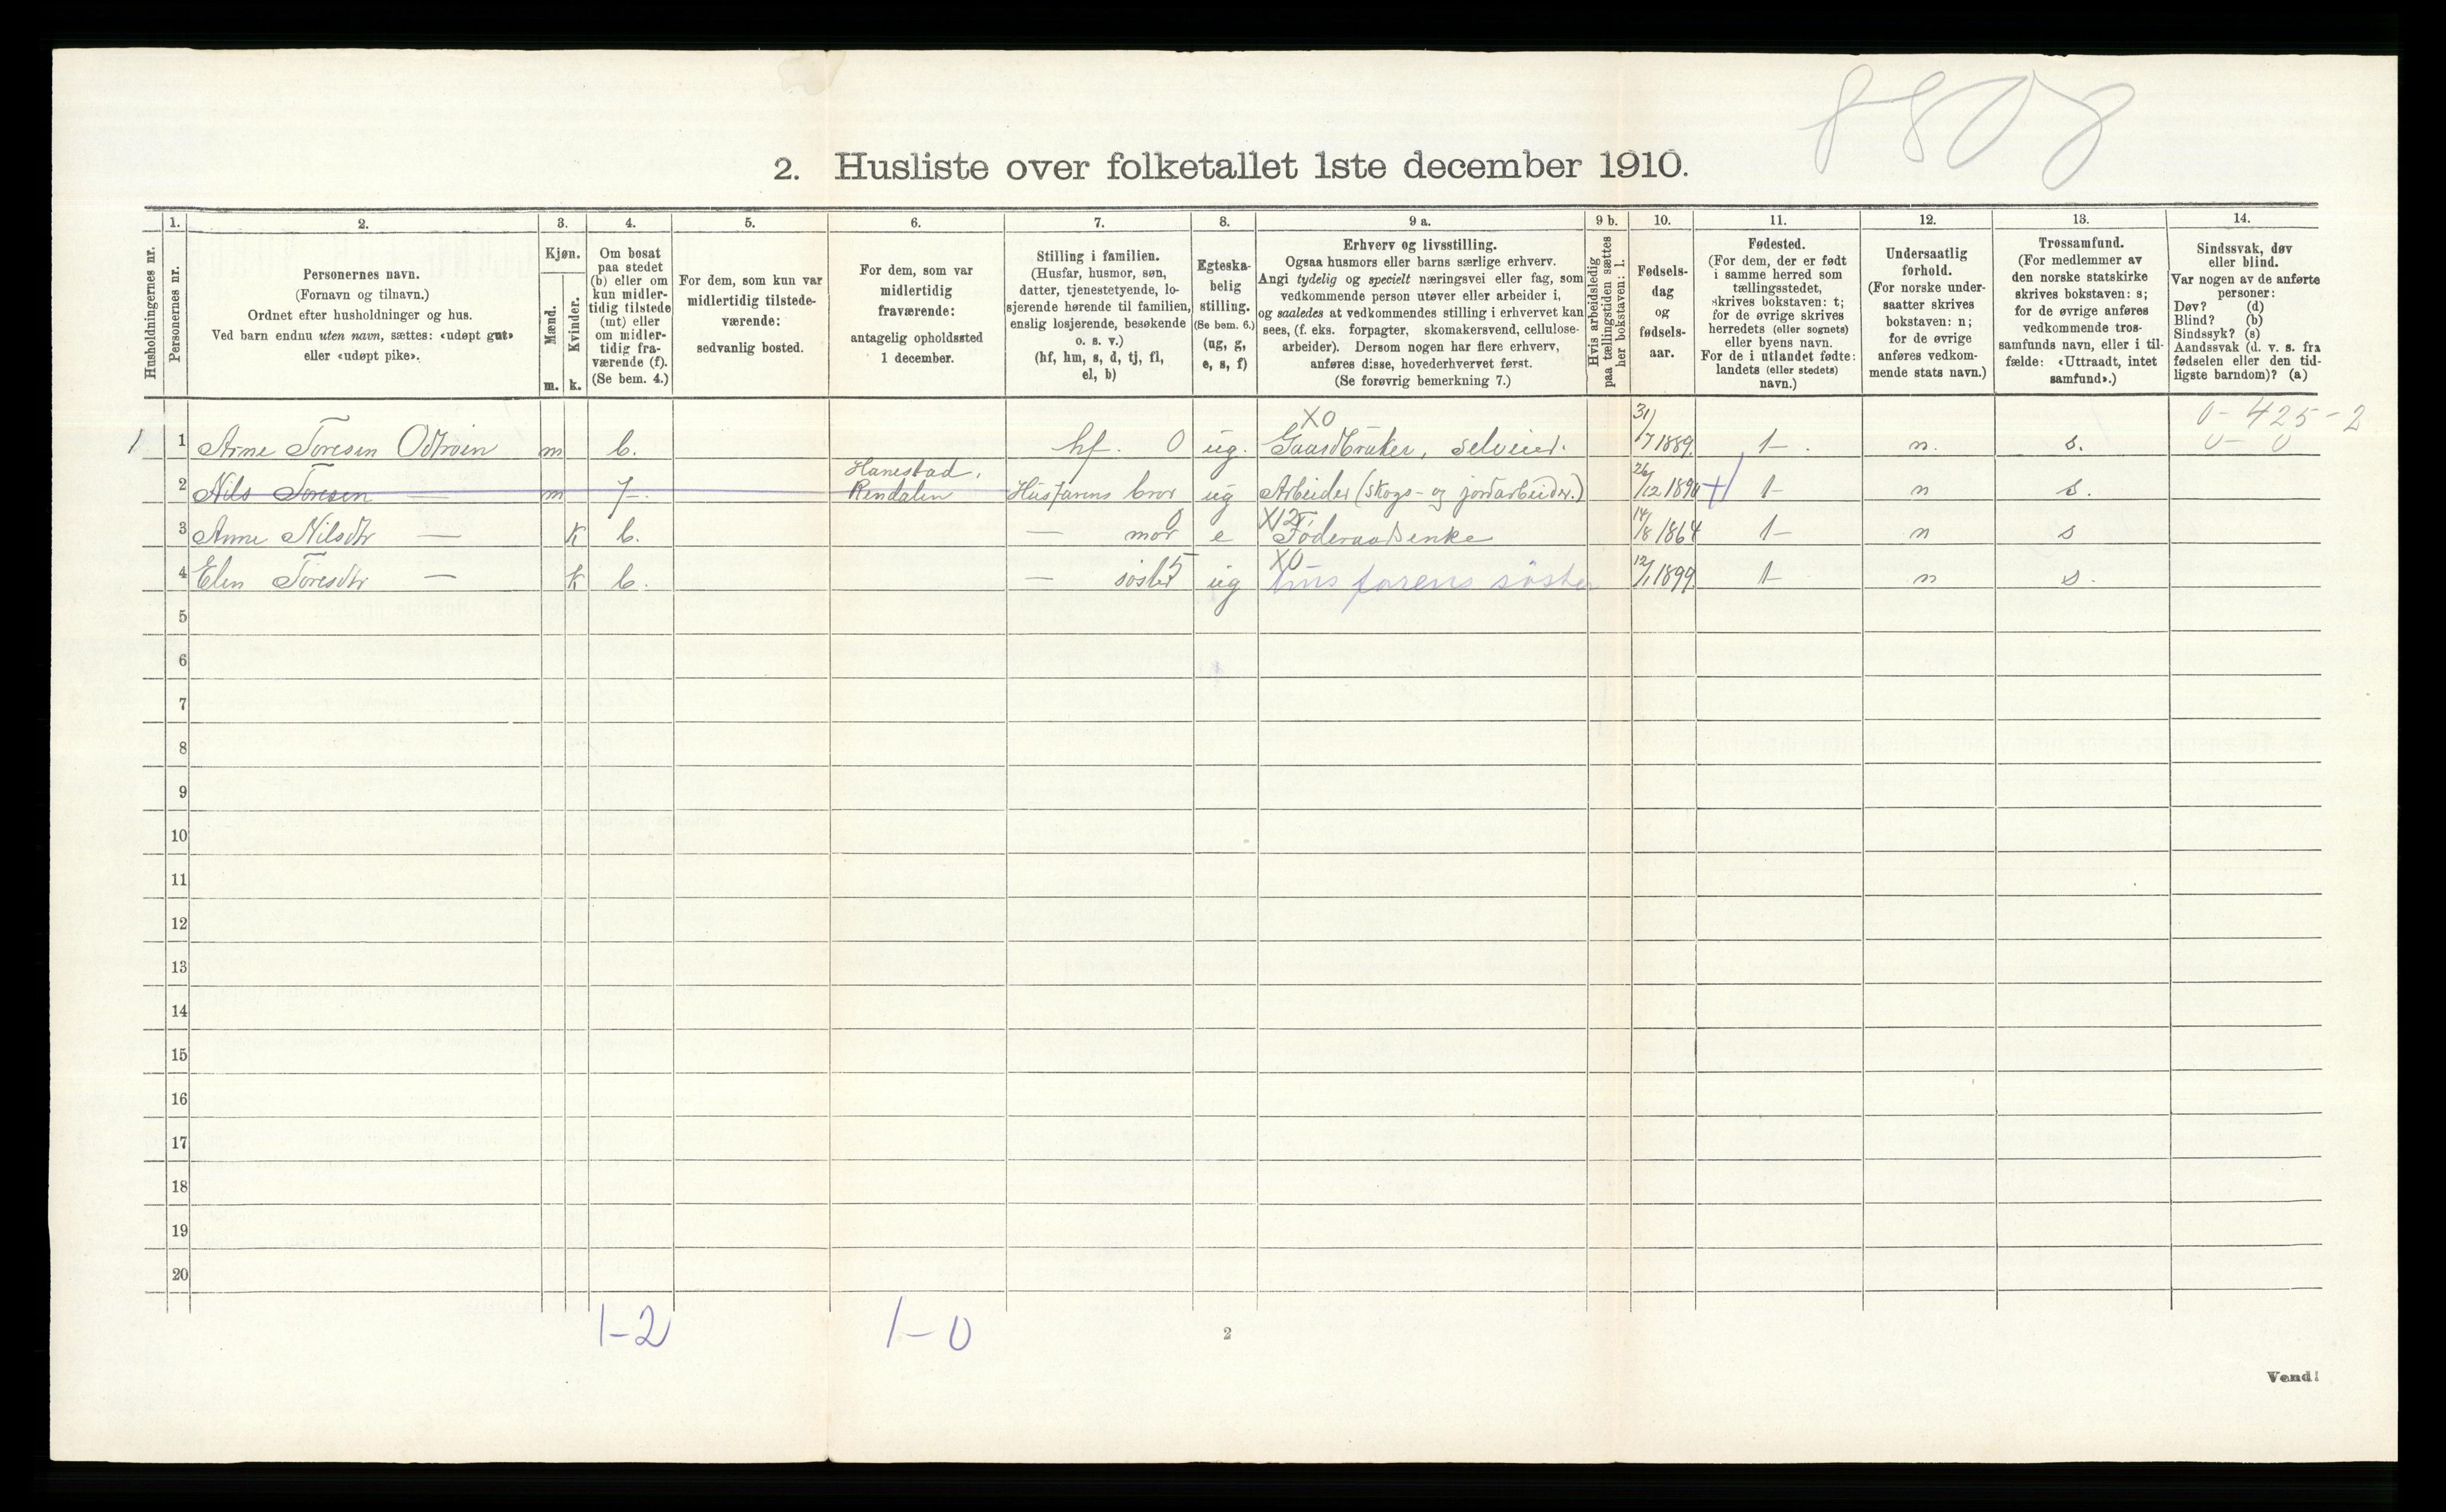 8808
2. Husliste over folketallet 1ste december 1910.
Husholdningernes nr.
1.
Personernes nr.
2.
Personernes navn.
(Fornavn og tilnavn.)
Ordnet efter husholdninger og hus.
Ved barn endnu uten navn, sættes: «udøpt gut»
eller «udøpt pike».
3.
Kjøn.
Mænd.
Kvinder.
m. k.
4.
Om bosat
paa stedet
(b) eller om
kun midler-
tidig tilstede
(mt) eller
om midler-
tidig fra-
værende (f).
(Se bem. 4.)
5.
For dem, som kun var
midlertidig tilstede-
værende:
sedvanlig bosted.
6.
For dem, som var
midlertidig
fraværende:
antagelig opholdssted
1 december.
7.
Stilling i familien.
(Husfar, husmor, søn,
datter, tjenestetyende, lo-
sjerende hørende til familien,
enslig losjerende, besøkende
o. s. v.)
(hf, hm, s, d, tj, fl,
el, b)
8.
Egteska-
belig
stilling.
(Se bem. 6.)
(ug, g,
e, s, f)
9 a.
Erhverv og livsstilling.
Ogsaa husmors eller barns særlige erhverv.
Angi tydelig og specielt næringsvei eller fag, som
vedkommende person utøver eller arbeider i,
og saaledes at vedkommendes stilling i erhvervet kan
sees, (f. eks. forpagter, skomakersvend, cellulose-
arbeider). Dersom nogen har flere erhverv,
anføres disse, hovederhvervet først.
(Se forøvrig bemerkning 7.)
9 b.
Hvis arbeidsledig
paa tællingstiden sættes
her bokstaven: l.
10.
Fødsels-
dag
og
fødsels-
aar.
11.
Fødested.
(For dem, der er født
i samme herred som
tællingsstedet,
skrives bokstaven: t;
for de øvrige skrives
herredets (eller sognets)
eller byens navn.
For de i utlandet fødte:
landets (eller stedets)
navn.)
12.
Undersaatlig
forhold.
(For norske under-
saatter skrives
bokstaven: n;
for de øvrige
anføres vedkom-
mende stats navn.)
13.
Trossamfund.
(For medlemmer av
den norske statskirke
skrives bokstaven: s;
for de øvrige anføres
vedkommende tros-
samfunds navn, eller i til-
fælde: «Uttraadt, intet
samfund».)
14.
Sindssvak, døv
eller blind.
Var nogen av de anførte
personer:
Døv? (d)
Blind? (b)
Sindssyk? (s)
Aandssvak (d. v. s. fra
fødselen eller den tid-
ligste barndom)? (a)
XO 0-425-2
1 1 Arne Toresen Odtrøen m b. hf. 0 ug. Gaardbruker, selveier. 31/7 1889. t. n. s. 0- 0
Hanestad,
2 Nils Toresen — m f. Rendalen Husfarens bror ug Arbeider (skogs- og jordarbeider.) 26/12 1890 t n s.
3 Anne Nilsdtr — k b. — mor 0 e X12 Føderaadsenke 14/8 1864 t n s
4 Elen Toresdtr — k b. — søster 5 ug XO husfarens søster 12/1 1899. t n s.
5
6
7
8
9
10
11
12
13
14
15
16
17
18
19
20
1-2 1-0
2
Vend!